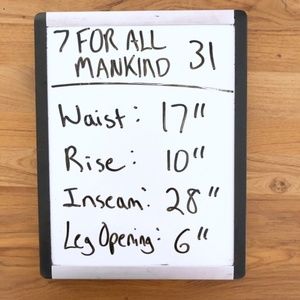 7 FOR ALL
MANKIND 31
Waist: 17"
Rise: 10"
Inseam: 28"
Leg Opening: 6"